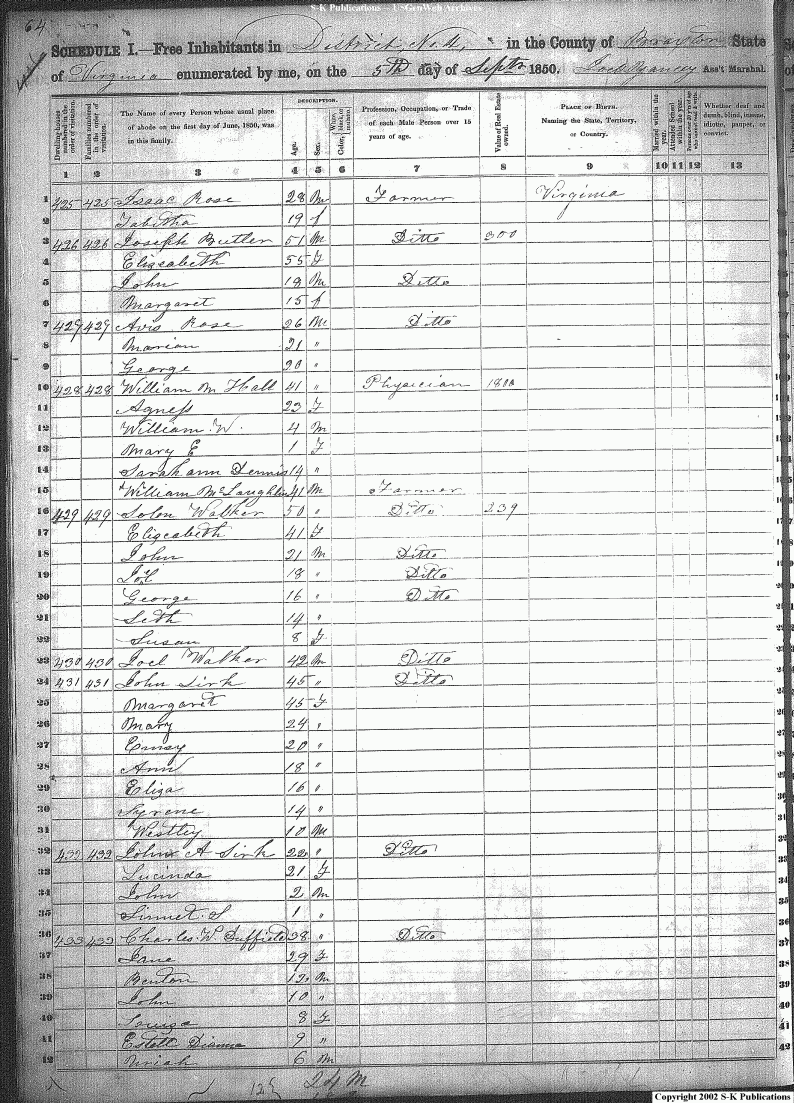 S-K Publications - USGenWeb Archives
64
SCHEDULE I.—Free Inhabitants in District No. 4, in the County of Braxton State
of Virginia enumerated by me, on the 5th day of Septr 1850. Ass't Marshal.
Dwelling-houses numbered in the order of visitation.
Families numbered in the order of visitation.
The Name of every Person whose usual place of abode on the first day of June, 1850, was in this family.
DESCRIPTION.
Age.
Sex.
Color, White, black, or mulatto.
Profession, Occupation, or Trade of each Male Person over 15 years of age.
Value of Real Estate owned.
PLACE OF BIRTH.
Naming the State, Territory, or Country.
Married within the year.
Attended School within the year.
Whether deaf and dumb, blind, insane, idiotic, pauper, or convict.
1 2 3 4 5 6 7 8 9 10 11 12 13
1 425 425 Isaac Rose 28 M Farmer Virginia
2 Tabitha 19 f
3 426 426 Joseph Butler 51 M Ditto 300
4 Elizabeth 55 F
5 John 19 M Ditto
6 Margaret 15 f
7 429 429 Avis Rose 26 M Ditto
8 Marian 21 "
9 George 20 "
10 428 428 William M Hall 41 " Physician 1800
11 Agness 23 F
12 William W. 4 M
13 Mary E 1 F
14 Sarah ann Dennis 14 "
15 William McLaughlin 41 M Farmer
16 429 429 Solon Walker 50 " Ditto 239
17 Elizeabeth 41 F
18 John 21 M Ditto
19 18 " Ditto
20 George 16 " Ditto
21 Seth 14 "
22 Susan 8 F
23 430 430 Joel Walker 42 M Ditto
24 431 431 John Sirk 45 " Ditto
25 Margaret 45 F
26 Mary 24 "
27 Emsy 20 "
28 Ann 18 "
29 Eliza 16 "
30 Syrene 14 "
31 Westley 10 M
32 432 432 John A Sirk 22 " Ditto
33 Lucinda 21 F
34 John 2 M
35 Sinnet S 1 "
36 433 433 Charles W. Duffield 38 " Ditto
37 Jane 29 F
38 Benton 12 M
39 John 10 "
40 Louiza 8 F
41 Estell Dianna 9 "
42 Uriah 6 M
24 M
Copyright 2002 S-K Publications